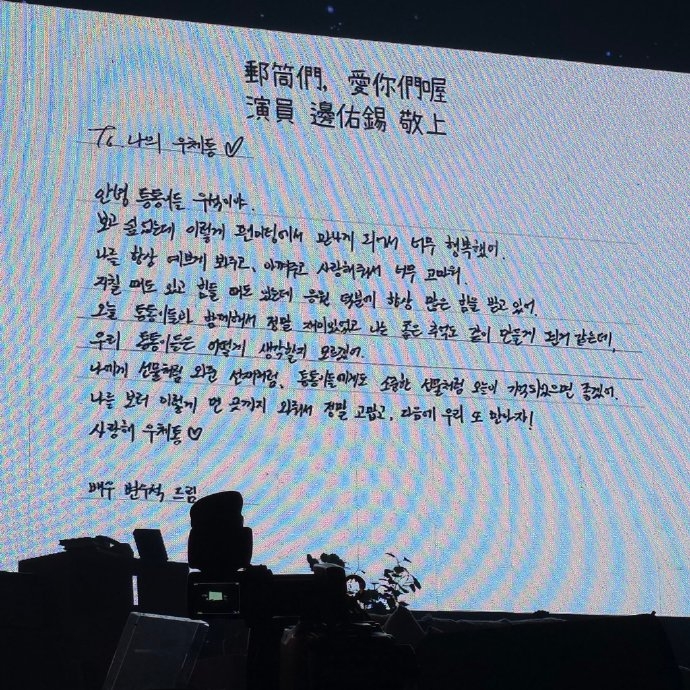 郵筒們, 愛你們喔
演員 邊佑錫 敬上
To 나의 우체통♡
안녕 통통이들 우석이야.
보고 싶었는데 이렇게 팬미팅에서 만나게 되어서 너무 행복했어.
나를 항상 예쁘게 봐주고, 아껴주고 사랑해줘서 너무 고마워.
지칠 때도 있고 힘들 때도 있는데 응원 덕분에 항상 많은 힘을 받고 있어.
오늘 통통이들과 함께해서 정말 재미있었고 나는 좋은 추억도 같이 만들게 된거 같은데,
우리 통통이들은 어떻게 생각할지 모르겠어.
나에게 선물처럼 와준 선재처럼, 통통이들에게도 소중한 선물처럼 오늘이 기억되었으면 좋겠어.
나를 보러 이렇게 먼 곳까지 와줘서 정말 고맙고, 다음에 우리 또 만나자!
사랑해 우체통♡
배우 변우석 드림